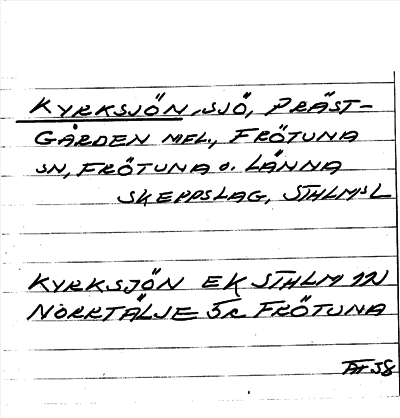 KYRKSJÖN, SJÖ, PRÄST-
GÅRDEN MFL., FRÖTUNA
SN, FRÖTUNA O. LÄNNA
SKEPPSLAG, STHLMS L
KYRKSJÖN EK STHLM 12N
NORRTÄLJE 5c FRÖTUNA